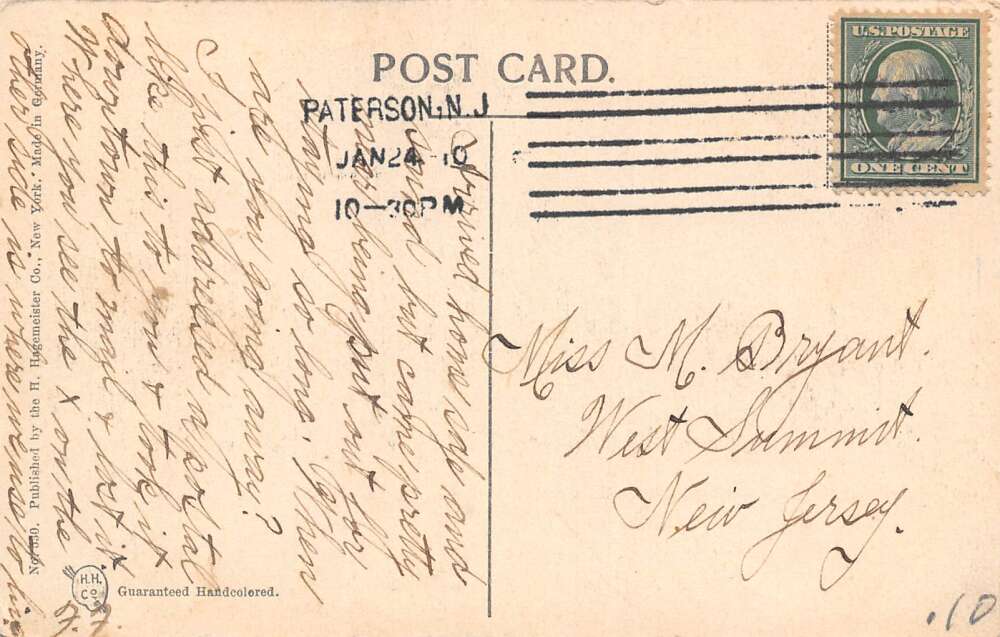 POST CARD.
U.S. POSTAGE
ONE CENT
PATERSON, N.J
JAN 24 10
10-30PM
Arrived home safe and
sound but came pretty
near being put out for
staying so long. When
are you going away?
I just addressed a postal
like this to you & took it
downtown to mail & lost it.
Where you see the x on the
other side is where we used to live
H.
H.
Miss M. Bryant.
West Summit.
New Jersey.
No. 530. Published by the H. Hagemeister Co., New York. Made in Germany.
H.H.
Co.
Guaranteed Handcolored.
.10